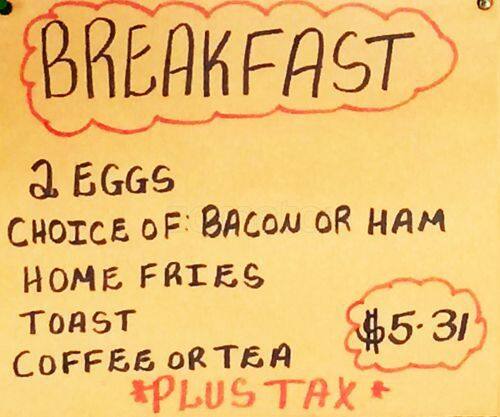 BREAKFAST
2 EGGS
CHOICE OF: BACON OR HAM
HOME FRIES
TOAST
COFFEE OR TEA
$5.31
*PLUS TAX*